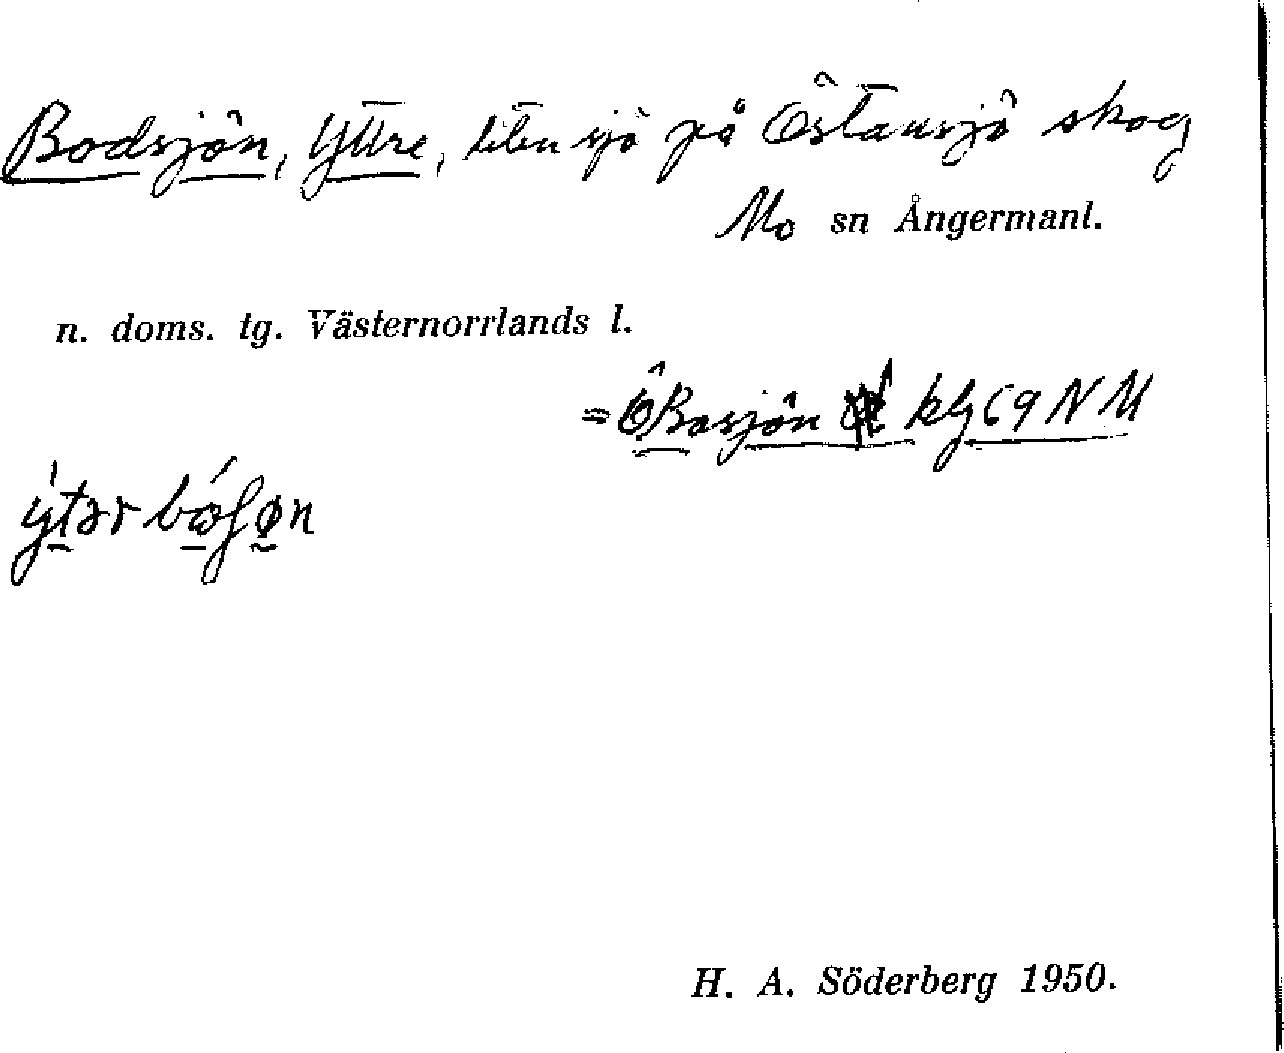 Bodsjön, Yttre, liten sjö på Östansjö skog
Mo sn Ångermanl.
n. doms. tg. Västernorrlands l.
= Ö Bosjön kbl 69 NM
ýtər bóʃøn
H. A. Söderberg 1950.